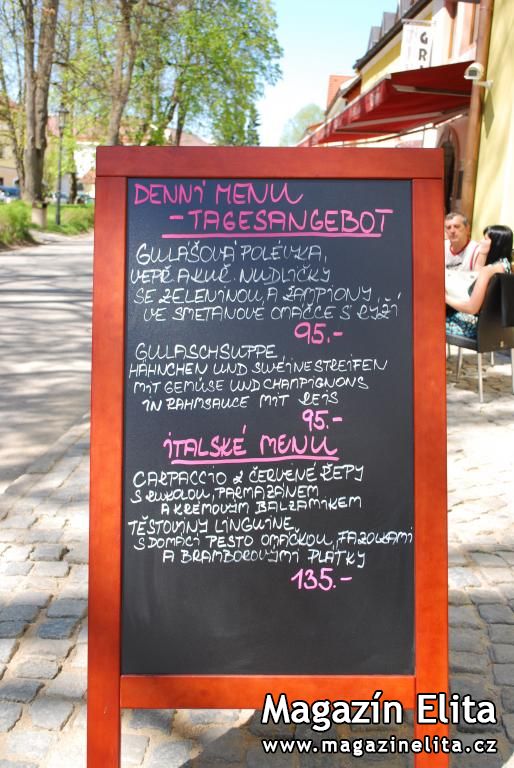 GRI
DENNÍ MENU
-TAGESANGEBOT
GULÁŠOVÁ POLÉVKA,
VEPŘ. A KUŘ. NUDLIČKY
SE ZELENINOU, A ŽAMPIONY,
VE SMETANOVÉ OMÁČCE S RÝŽÍ
95.-
GULASCHSUPPE
HÄHNCHEN UND SWEINESTREIFEN
MIT GEMÜSE UND CHAMPIGNONS
IN RAHMSAUCE MIT REIS
95.-
ITALSKÉ MENU
CARPACCIO Z ČERVENÉ ŘEPY
S RUKOLOU, PARMAZÁNEM
A KRÉMOVÝM BALZAMIKEM
TĚSTOVINY LINGUINE
S DOMÁCÍ PESTO OMÁČKOU, FAZOLKAMI
A BRAMBOROVÝMI PLÁTKY
135.-
Magazín Elita
www.magazinelita.cz